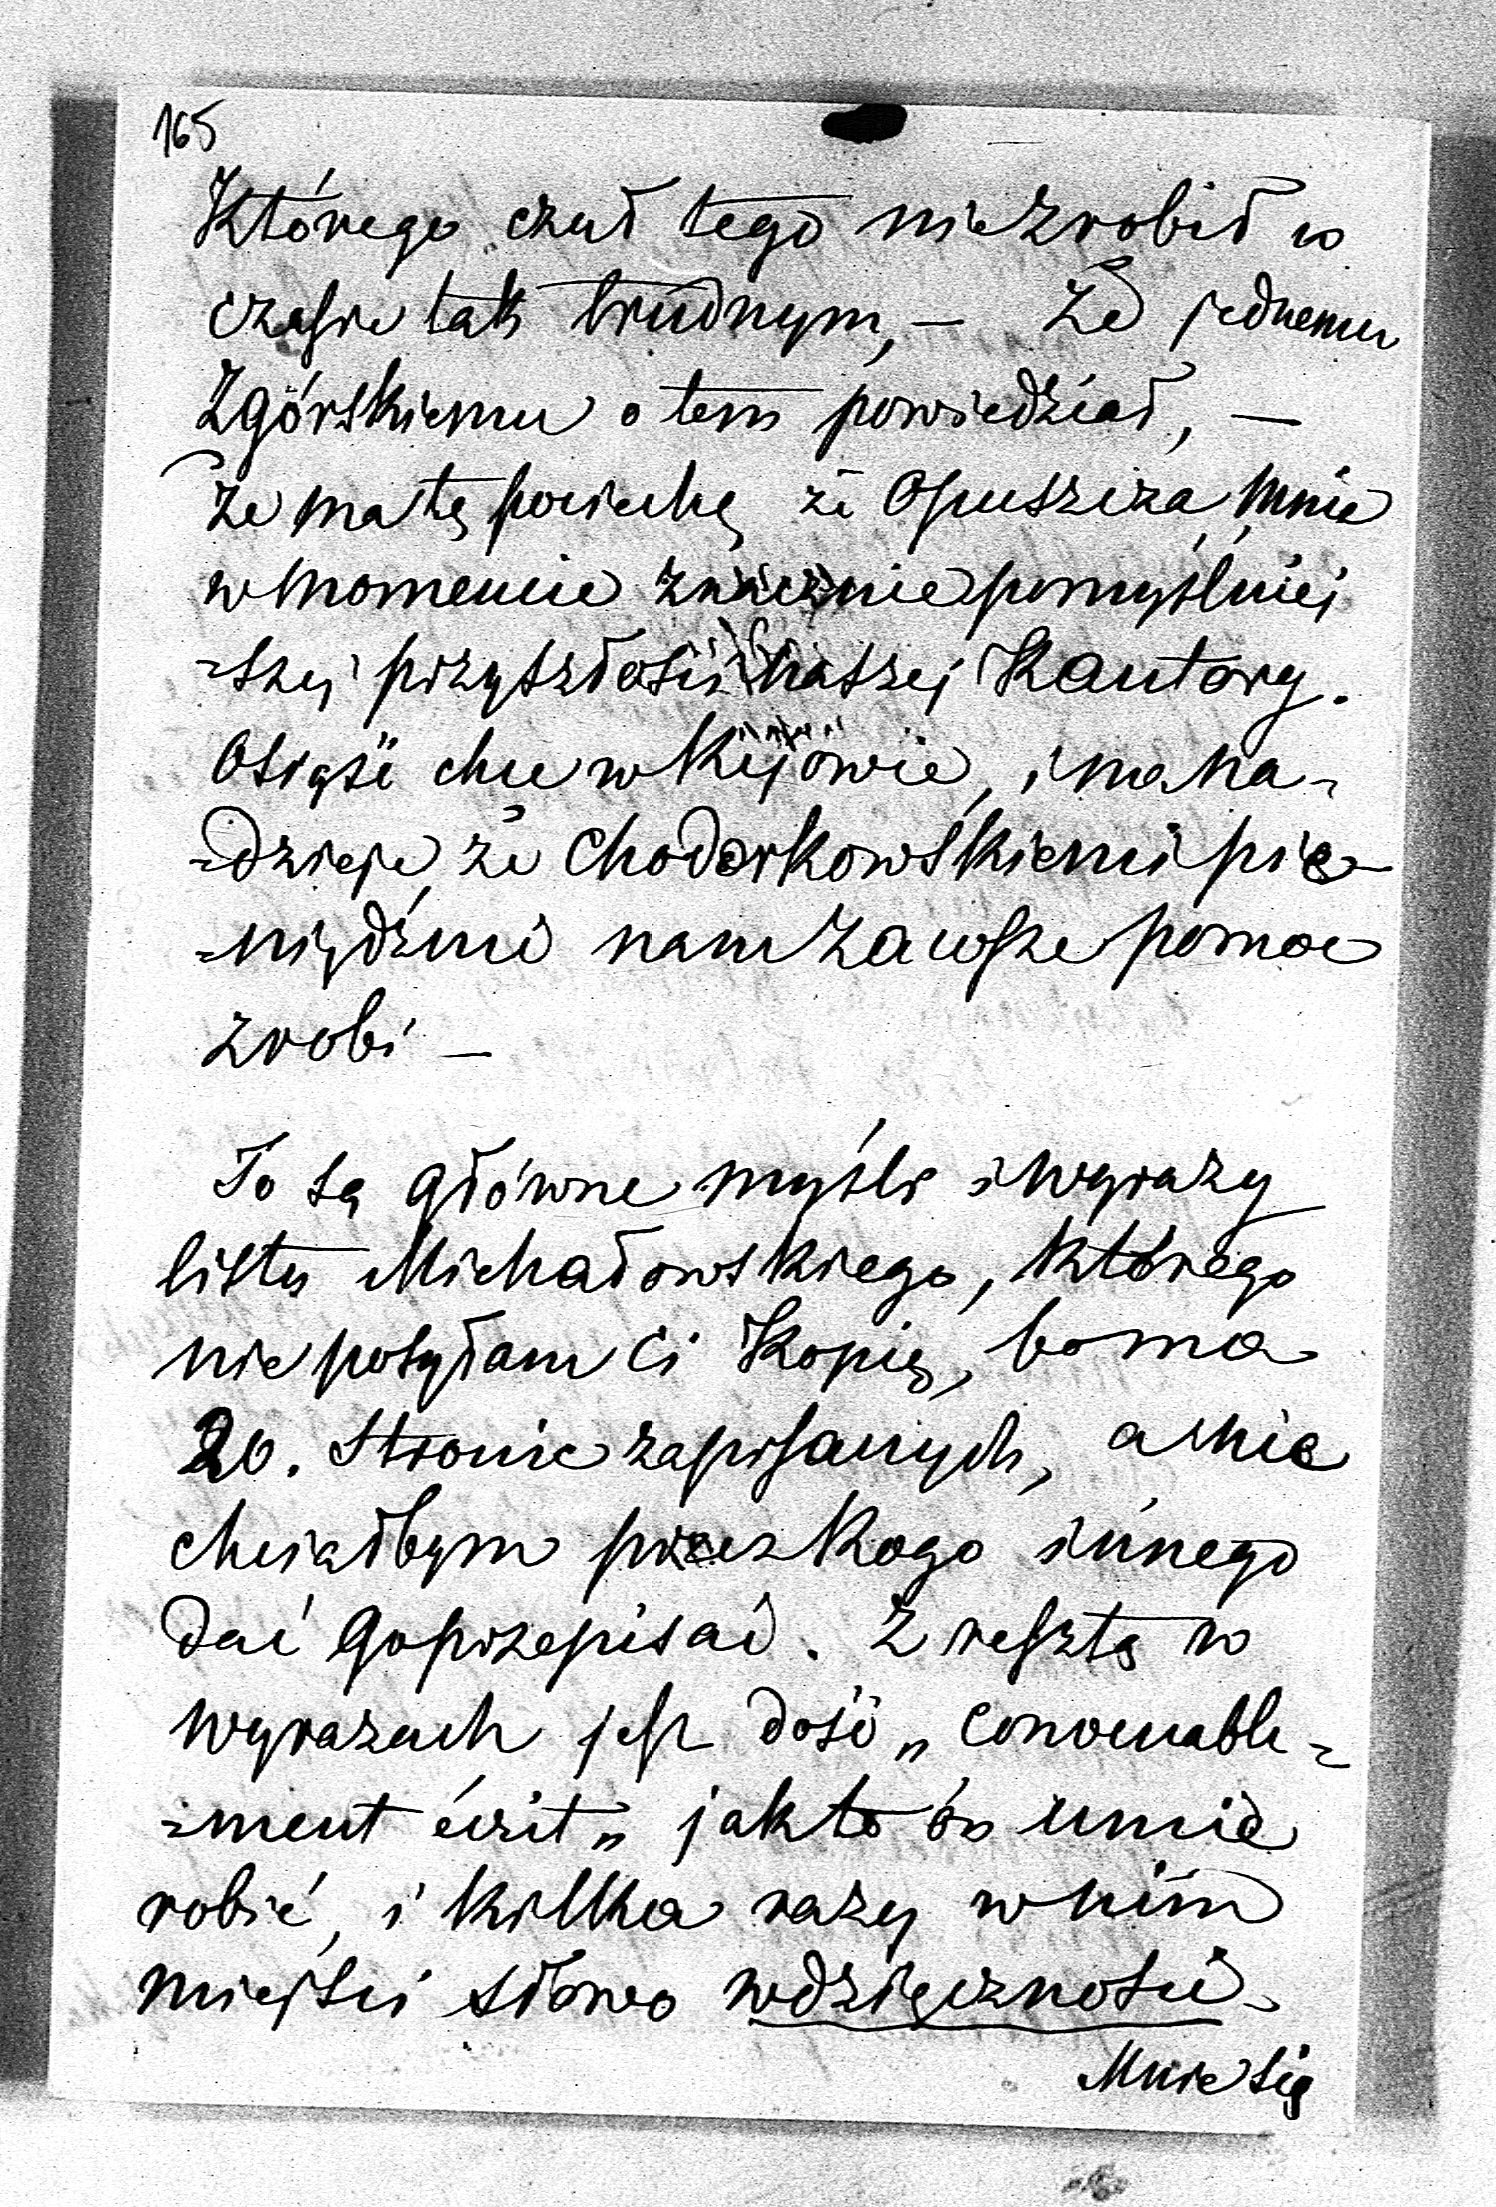 165
Którego czuł tego nie zrobił w
czasie tak trudnym, — Że jednemu
Zgórskiemu o tem powiedział, —
Że ma tę pociechę że opuszcza mnie
w momencie znacznie pomyślniej
=szej przyszłości naszej Kantory.
Osiąść chce w Kijowie, i ma na=
=dzieje że Chodorkowskiemi pie=
=niędźmi nam zawsze pomoc
zrobi —
To są główne myśli i wyrazy
listu Michałowskiego, którego
nie posyłam Ci Kopię, bo ma
20. stronic zapisanych, a nie
chciałbym przez Kogo innego
dać go przepisać. Z resztą w
wyrazach jest dość „convenable=
=ment écrit„ jak to on umie
robić, i kilka razy w nim
mieści słowo wdzięczności.
Mnie się